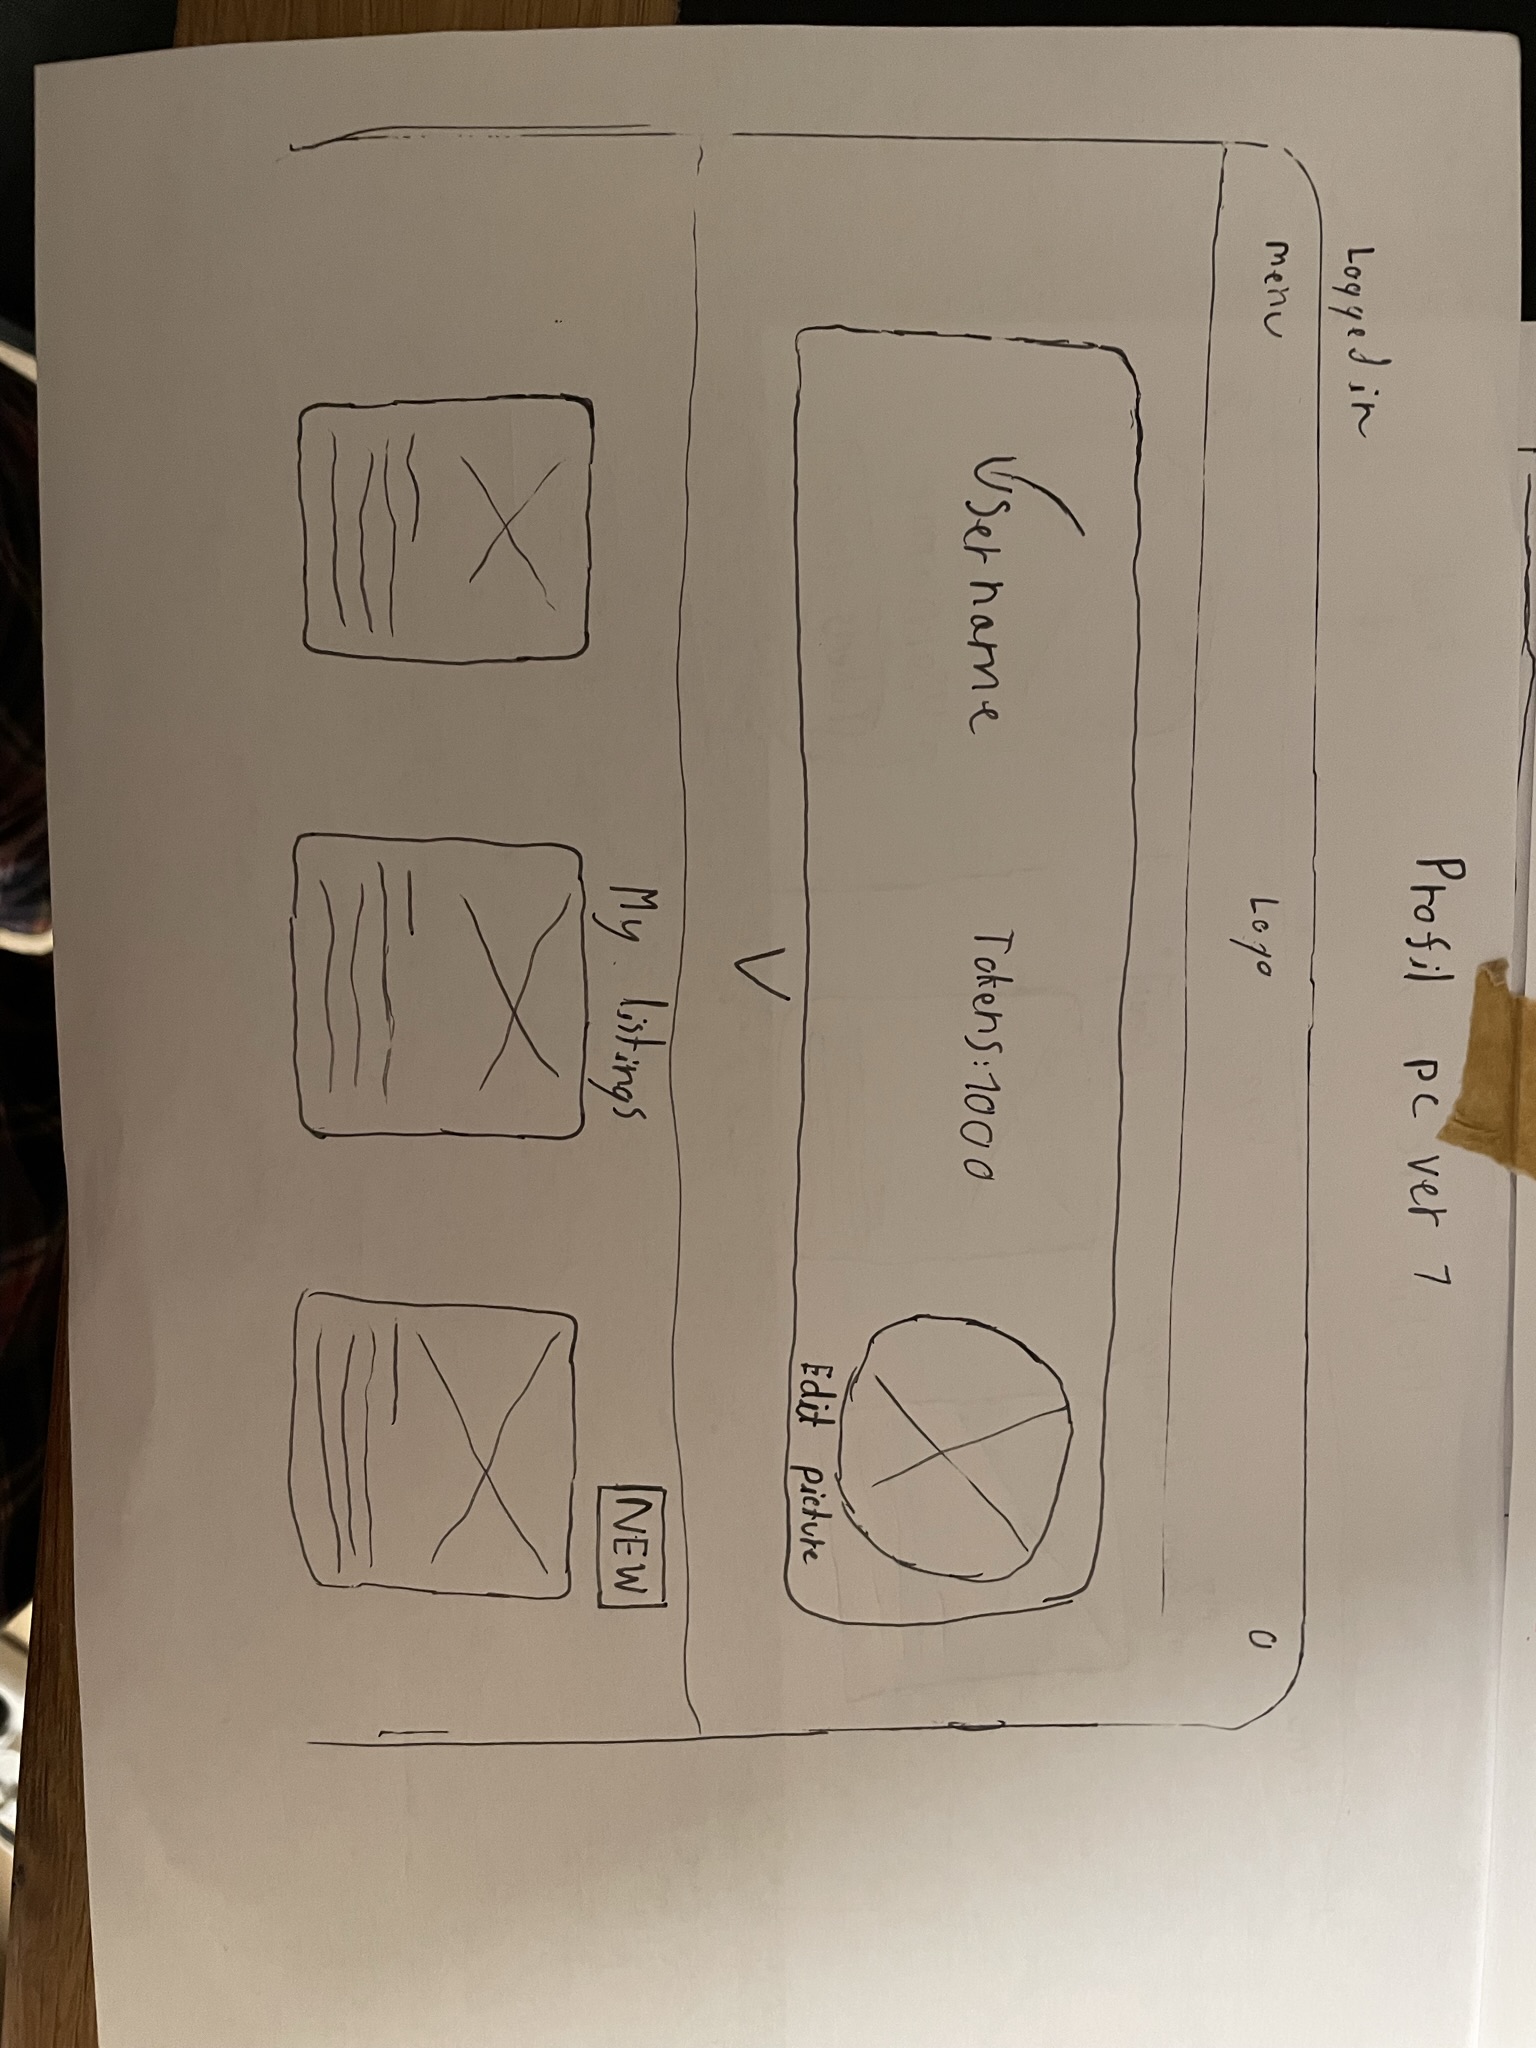 Profil pc ver 1
Logged in
menu Logo O
Username Tokens:1000
Edit picture
V
My listings NEW